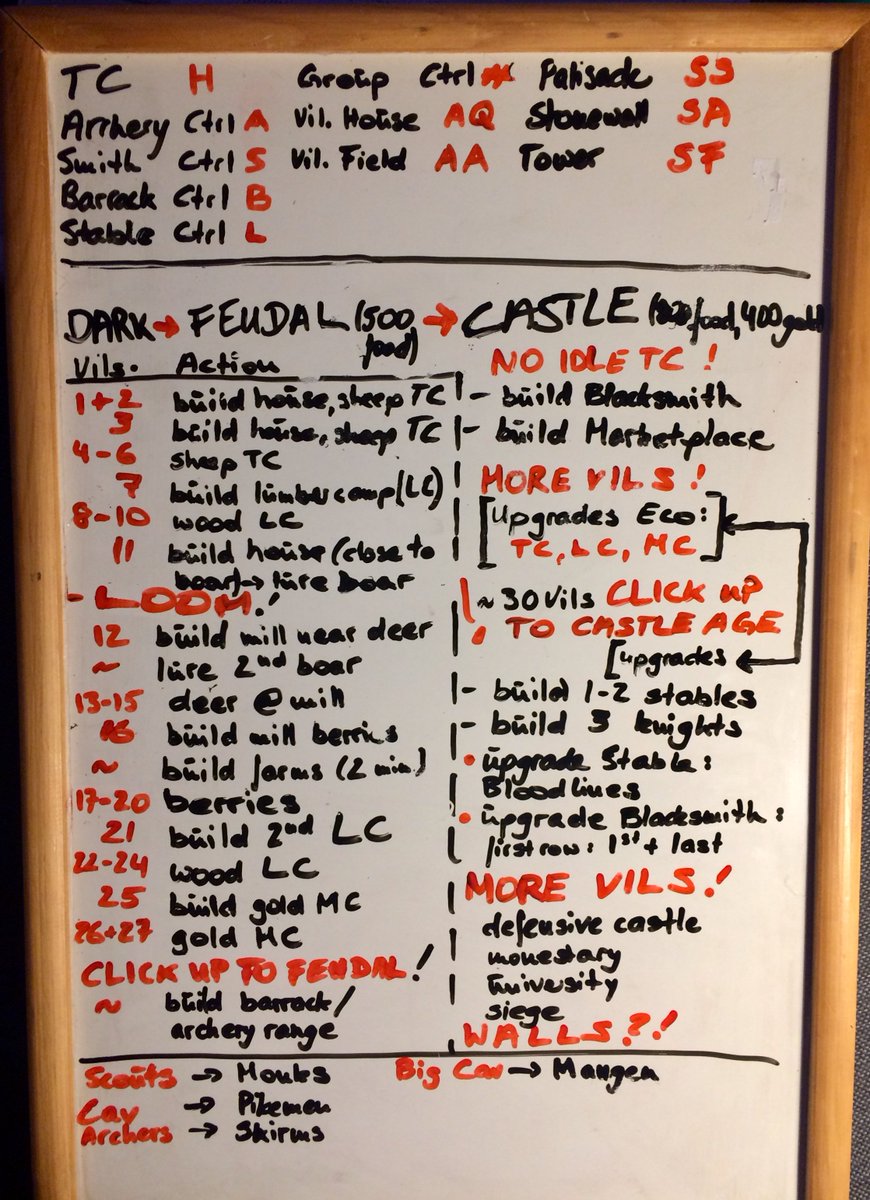 TC H Group Ctrl # Palisade SS
Archery Ctrl A Vil. House AQ Stonewall SA
Smith Ctrl S Vil. Field AA Tower SF
Barrack Ctrl B
Stable Ctrl L
DARK → FEUDAL (500 food) → CASTLE (800 food, 400 gold)
Vils. Action
1+2 build house, sheep TC
3 build house, sheep TC
4-6 sheep TC
7 build lumbercamp (LC)
8-10 wood LC
11 build house (close to
boar) → lure boar
- LOOM!
12 build mill near deer
~ lure 2nd boar
13-15 deer @ mill
16 build mill berries
~ build farms (2 min)
17-20 berries
21 build 2nd LC
22-24 wood LC
25 build gold MC
26+27 gold MC
CLICK UP TO FEUDAL!
~ build barrack/
archery range
NO IDLE TC!
- build Blacksmith
- build Marketplace
MORE VILS!
[Upgrades Eco:
TC, LC, MC]
! ~ 30 Vils CLICK UP
TO CASTLE AGE
[upgrades
- build 1-2 stables
- build 3 knights
• upgrade Stable:
Bloodlines
• upgrade Blacksmith:
first row: 1st + last
MORE VILS!
defensive castle
monestary
university
siege
WALLS?!
Scouts → Monks Big Cav → Mangen
Cav → Pikemen
Archers → Skirms